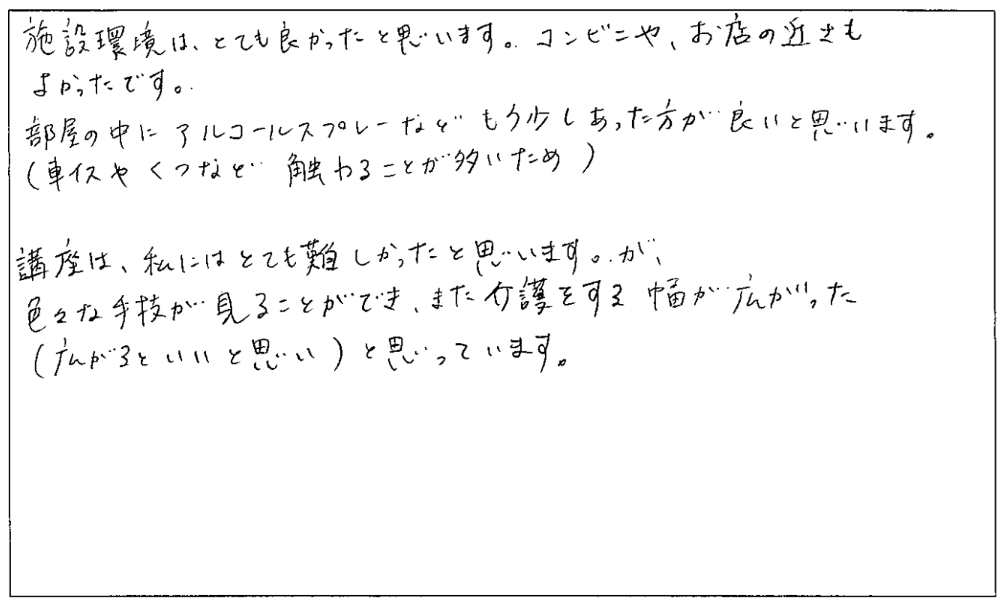 施設環境は、とても良かったと思います。コンビニや、お店の近さも
よかったです。
部屋の中にアルコールスプレーなどもう少しあった方が良いと思います。
(車イスやくつなど触わることが多いため)
講座は、私にはとても難しかったと思います。が、
色々な手技が見ることができ、また介護をする幅が広がった
(広がるといいと思い)と思っています。